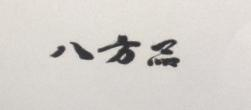 八方品